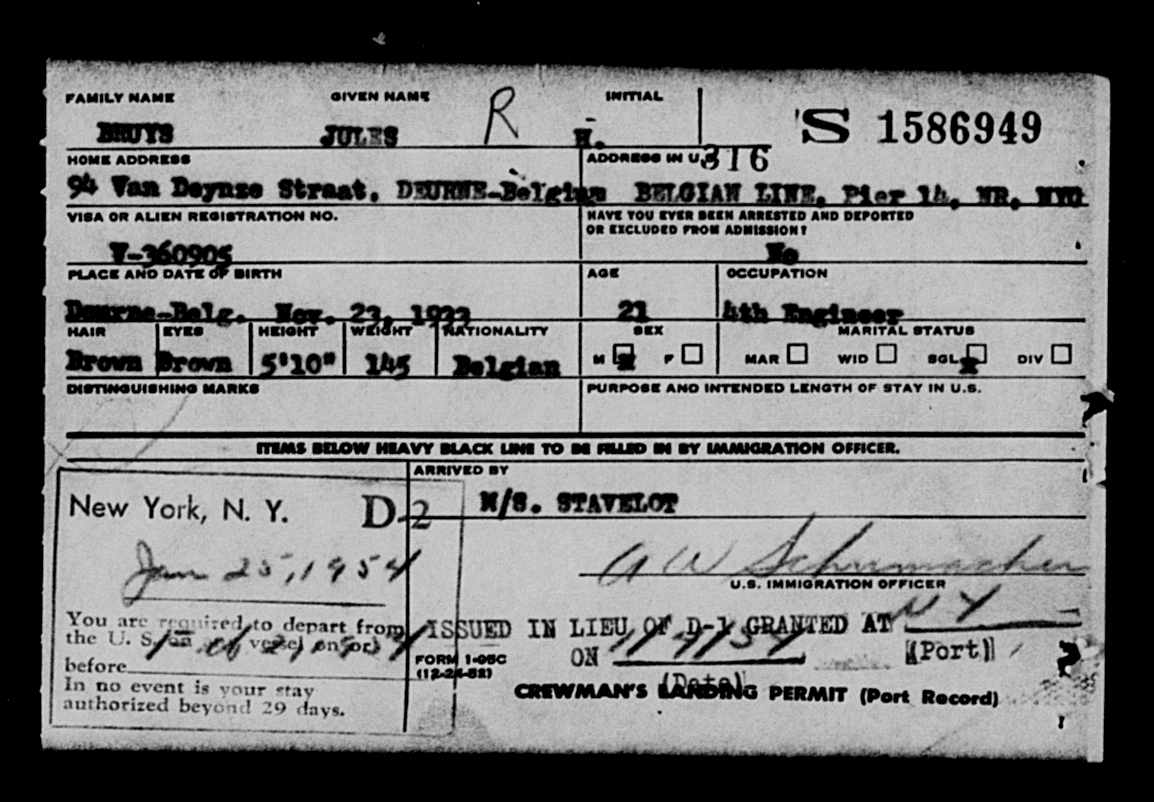 FAMILY NAME GIVEN NAME R INITIAL S 1586949
BRUYS JULES H.
HOME ADDRESS ADDRESS IN U.S. 316
94 Van Deynze Straat, DEURNE-Belgium BELGIAN LINE, Pier 14, NR, NYC
VISA OR ALIEN REGISTRATION NO. HAVE YOU EVER BEEN ARRESTED AND DEPORTED
OR EXCLUDED FROM ADMISSION?
V-360905 No
PLACE AND DATE OF BIRTH AGE OCCUPATION
Deurne-Belg. Nov. 23, 1932 21 4th Engineer
HAIR EYES HEIGHT WEIGHT NATIONALITY SEX MARITAL STATUS
Brown Brown 5'10" 145 Belgian M X F MAR WID SGL X DIV
DISTINGUISHING MARKS PURPOSE AND INTENDED LENGTH OF STAY IN U.S.
ITEMS BELOW HEAVY BLACK LINE TO BE FILLED IN BY IMMIGRATION OFFICER.
ARRIVED BY
New York, N. Y. D-2 M/S. STAVELOT
Jan 25, 1954 A W Schumacher
U.S. IMMIGRATION OFFICER
You are required to depart from ISSUED IN LIEU OF D-1 GRANTED AT N Y
the U. S. on vessel on or ON (Port)
before FORM I-95C
(12-24-52)
(Date)
In no event is your stay CREWMAN'S LANDING PERMIT (Port Record)
authorized beyond 29 days.